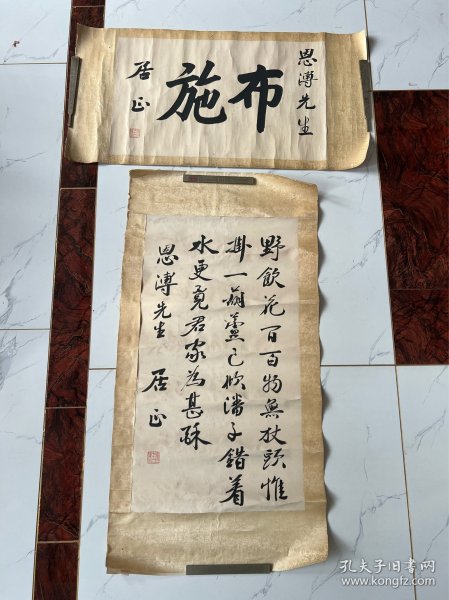 恩溥先生
布施
居正
野飲花間百物無杖頭惟
掛一葫蘆已傾潘子錯着
水更覓君家為甚酥
恩溥先生 居正
孔夫子旧书网
www.kongfz.com